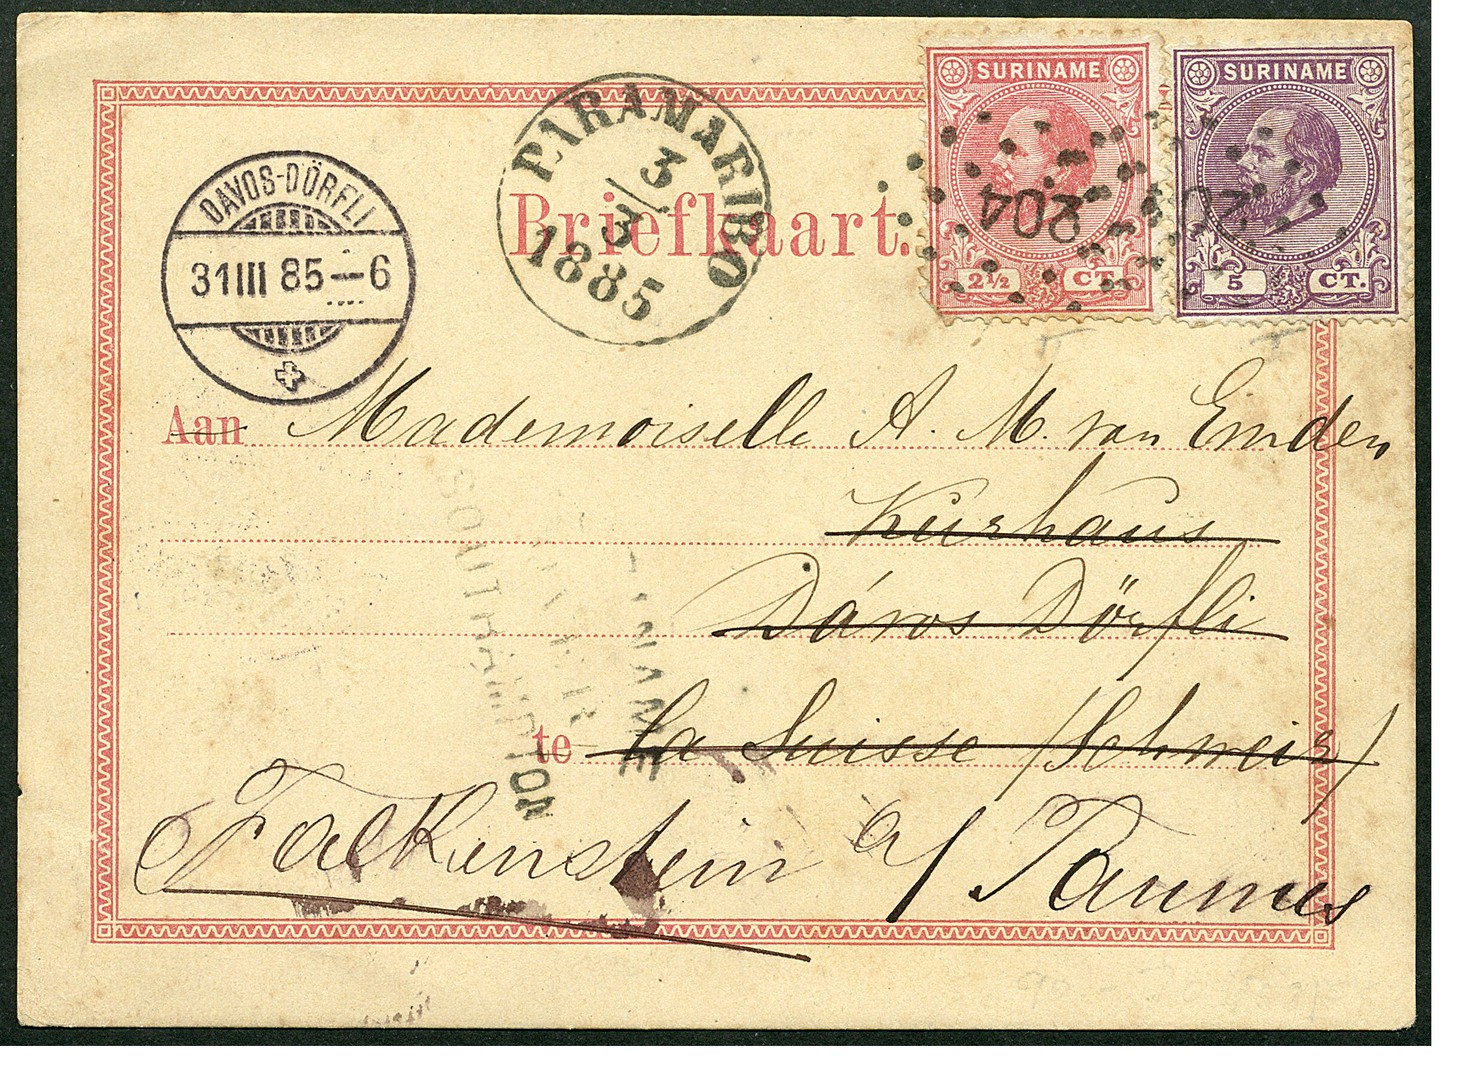 SURINAME
SURINAME
2½ CT.
5 CT.
204
PARAMARIBO
3/3
1885
DAVOS-DÖRFLI
31 III 85 – 6
Briefkaart.
Aan Mademoiselle A. M. van Emden
Kurhaus
Dávos Dörfli
te La Suisse (Schweiz)
Falkenstein a/ Taunus
SOUTHAMPTON